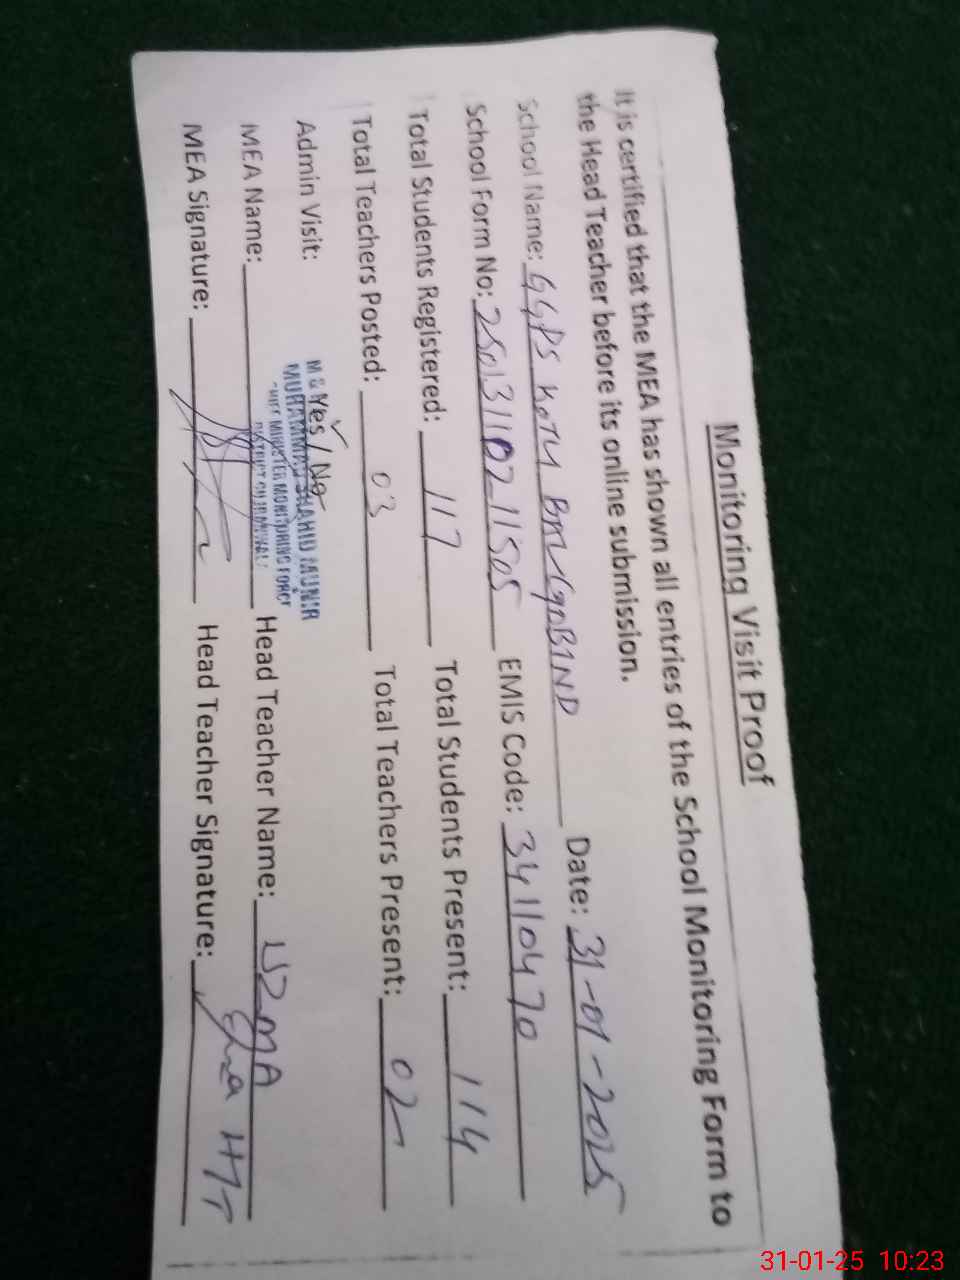 Monitoring Visit Proof
It is certified that the MEA has shown all entries of the School Monitoring Form to
the Head Teacher before its online submission.
School Name: GGPS KOTLI Date: 31-01-2025
School Form No: EMIS Code: 34110470
Total Students Registered: 117 Total Students Present: 114
Total Teachers Posted: 03 Total Teachers Present: 02
Admin Visit: Yes / No
M & E
MUHAMMAD SHAHID MUNIR
CHIEF MINISTER MONITORING FORCE
DISTRICT GUJRANWALA
MEA Name: Head Teacher Name: UZMA
MEA Signature: Head Teacher Signature:
31-01-25 10:23